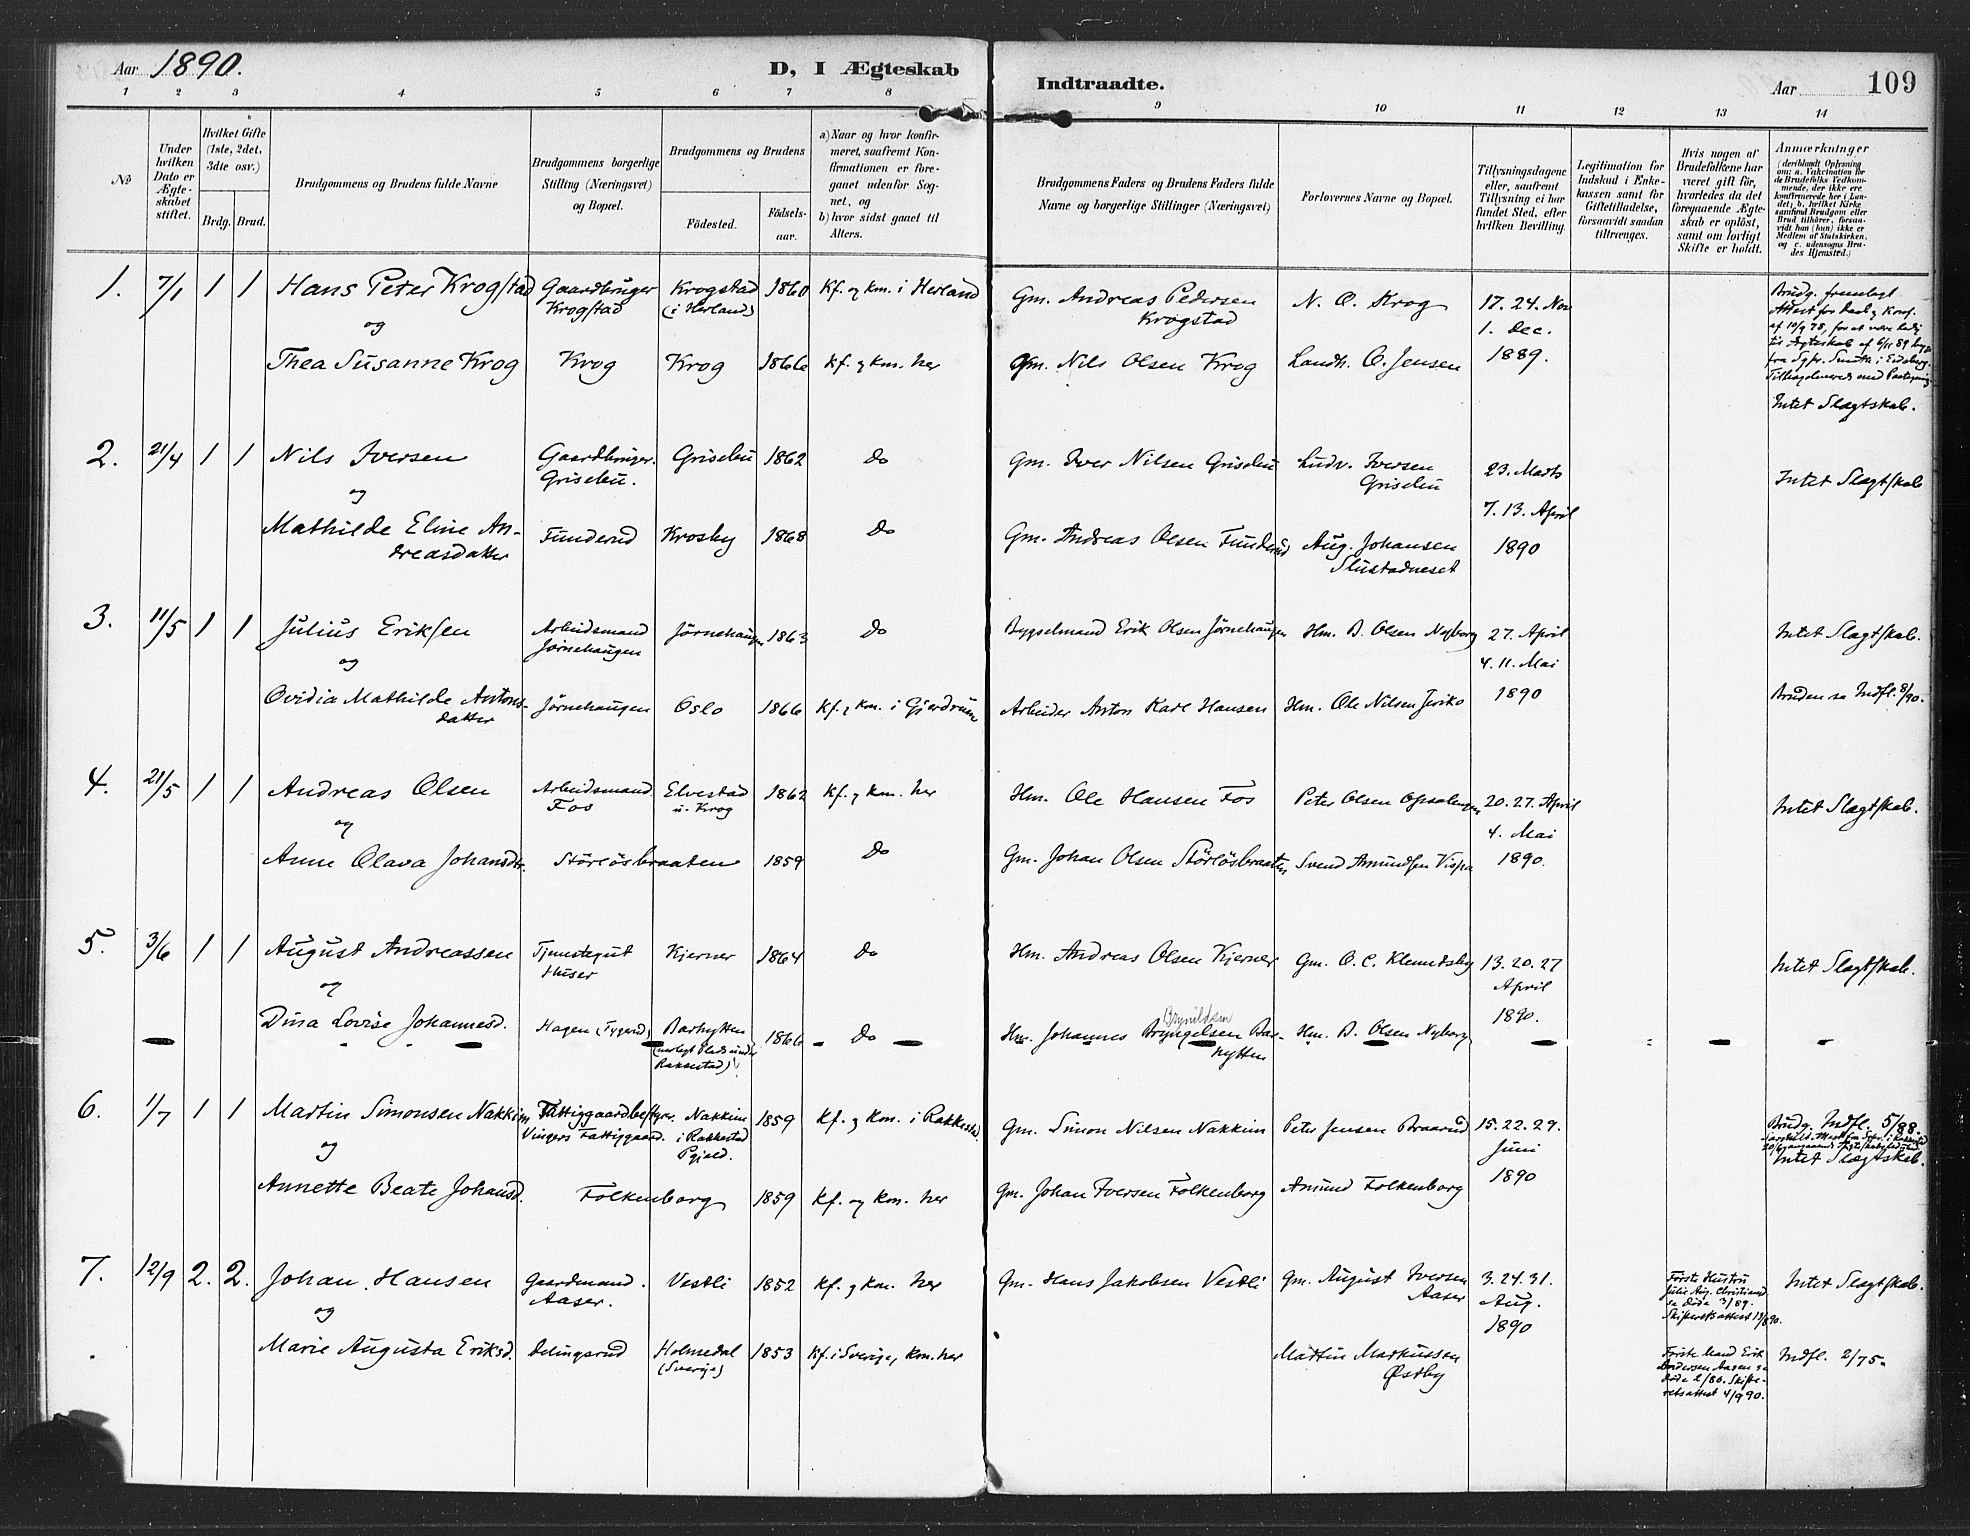 Aar 1890.
D, I Ægteskab
Indtraadte.
Aar
109
1 2 3 4 5 6 7 8 9 10 11 12 13 14
№
Under hvilken Dato er Ægteskabet stiftet.
Hvilket Gifte (1ste, 2det, 3dte osv.)
Brdg. Brud.
Brudgommens og Brudens fulde Navne
Brudgommens borgerlige Stilling (Næringsvei) og Bopæl.
Brudgommens og Brudens
Fødested.
Fødselsaar.
a) Naar og hvor konfirmeret, saafremt Konfirmationen er foregaaet udenfor Sognet, og
b) hvor sidst gaaet til Alters.
Brudgommens Faders og Brudens Faders fulde Navne og borgerlige Stillinger (Næringsvei)
Forlovernes Navne og Bopæl.
Tillysningsdagene eller, saafremt Tillysning ei har fundet Sted, efter hvilken Bevilling.
Legitimation for Indskud i Enkekassen samt for Giftetilladelse, forsaavidt saadan tiltrænges.
Hvis nogen af Brudefolkene har været gift før, hvorledes da det foregaaende Ægteskab er opløst, samt om lovligt Skifte er holdt.
Anmærkninger
(deriblandt Oplysning om: a. Vakcination for de Brudefolks Vedkommende, der ikke ere konfirmerede her i Landet; b. hvilket Kirkesamfund Brudgom eller Brud tilhører, forsaavidt han (hun) ikke er Medlem af Statskirken, og c. udensogns Brudes Hjemsted.)
1. 7/1 1 1 Hans Peter Krogstad Gaardbruger Krogstad Krogstad (i Herland) 1860 Kf. og km. i Herland Gm. Andreas Pedersen Krogstad N. O. Krog 17. 24. Nov 1. Dec. 1889.
og
Thea Susanne Krog Krog Krog 1866 Kf. og km. her Gm. Nils Olsen Krog Landh. O. Jensen
Intet Slægtskab.
2. 21/4 1 1 Nils Iversen Gaardbruger. Grisebu. Grisebu 1862 do Gm. Iver Nilsen Grisebu Ludv. Iversen Grisebu 23. Marts 7. 13. April 1890 Intet Slægtskab
og
Mathilde Eline Andreasdatter Funderud Krosby 1868 do Gm. Andreas Olsen Funderud Aug. Johansen Slustadneset
3. 11/5 1 1 Julius Eriksen Arbeidsmand Jørnehaugen Jørnehaugen 1863 do Bygselmand Erik Olsen Jørnehaugen Hm. B. Olsen Nyborg 27. April 4. 11. Mai 1890 Intet Slægtskab.
og
Ovidia Mathilde Antonsdatter Jørnehaugen Oslo 1866 Kf. og km. i Gjerdrum Arbeider Anton Karl Hansen Hm. Ole Nilsen Jeriko Bruden sa Indfl. 8/90.
4. 21/5 1 1 Andreas Olsen Arbeidsmand Fos Elvestad u. Krog 1862 Kf. og km. her Hm. Ole Hansen Fos Peter Olsen Opsalengen 20. 27. April 4. Mai 1890. Intet Slægtskab.
og
Anne Olava Johansdtr. Störlösbraaten 1859 do Gm. Johan Olsen Störlösbraaten Svend Amundsen Vispa
5. 3/6 1 1 August Andreassen Tjenestegut Huser Kjerner 1864 do Hm. Andreas Olsen Kjerner Gm. O. C. Klemdsby 13. 20. 27 April 1890. Intet Slægtskab.
og
Dina Lovise Johannesd. Hagen Barhytten Rakkestad) 1866 do Hm. Johannes Bryngelsen Brynildsen Barhytten Hm. B. Olsen Nyborg
6. 1/7 1 1 Martin Simonsen Nakkim Fattiggaardbestyrer. Vingers Fattiggaard. Nakkim i Rakkestad Pgjæld. 1859 Kf. og km. i Rakkestad Gm. Simon Nilsen Nakkim Peter Jensen Braarud 15. 22. 29. Juni 1890 Brudg. Indfl. 5/88.
Intet Slægtskab.
og
Annette Beate Johansd. Folkenborg 1859 Kf. og km. her Gm. Johan Iversen Folkenborg Amund Folkenborg
7. 12/9 2. 2. Johan Hansen Gaardmand. Aaser. Vestli 1852 Kf. og km. her Gm. Hans Jakobsen Vestli Gm. August Iversen Aaser 3. 24. 31. Aug. 1890 Første Hustru Julie Aug. Christiansd. sa Døde 3/89. Skifteretsattest Intet Slægtskab.
og
Marie Augusta Eriksd. Delingsrud Holmedal (Sverige) 1853 Kf. i Sverige, km. her Martin Markussen Østby Første Mand Erik Andersen Aasen sa Døde 2/86. Skifteretsattest 4/9 90. Indfl. 2/75.